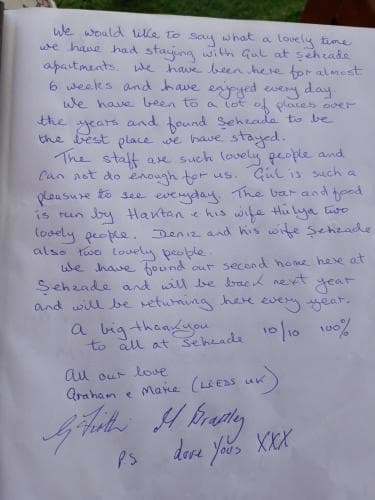 We would like to say what a lovely time
we have had staying with Gül at Şehzade
apartments. We have been here for almost
6 weeks and have enjoyed every day.
We have been to a lot of places over
the years and found Şehzade to be
the best place we have stayed.
The staff are such lovely people and
can not do enough for us. Gül is such a
pleasure to see everyday. The bar and food
is run by Harkan & his wife Hülya two
lovely people. Deniz and his wife Şehzade
also two lovely people.
We have found our second home here at
Şehzade and will be back next year
and will be returning here every year.
A big thankyou 10/10 100%
to all at Sehzade
All our love
Graham & Marie (LEEDS UK)
PS love Yous XXX